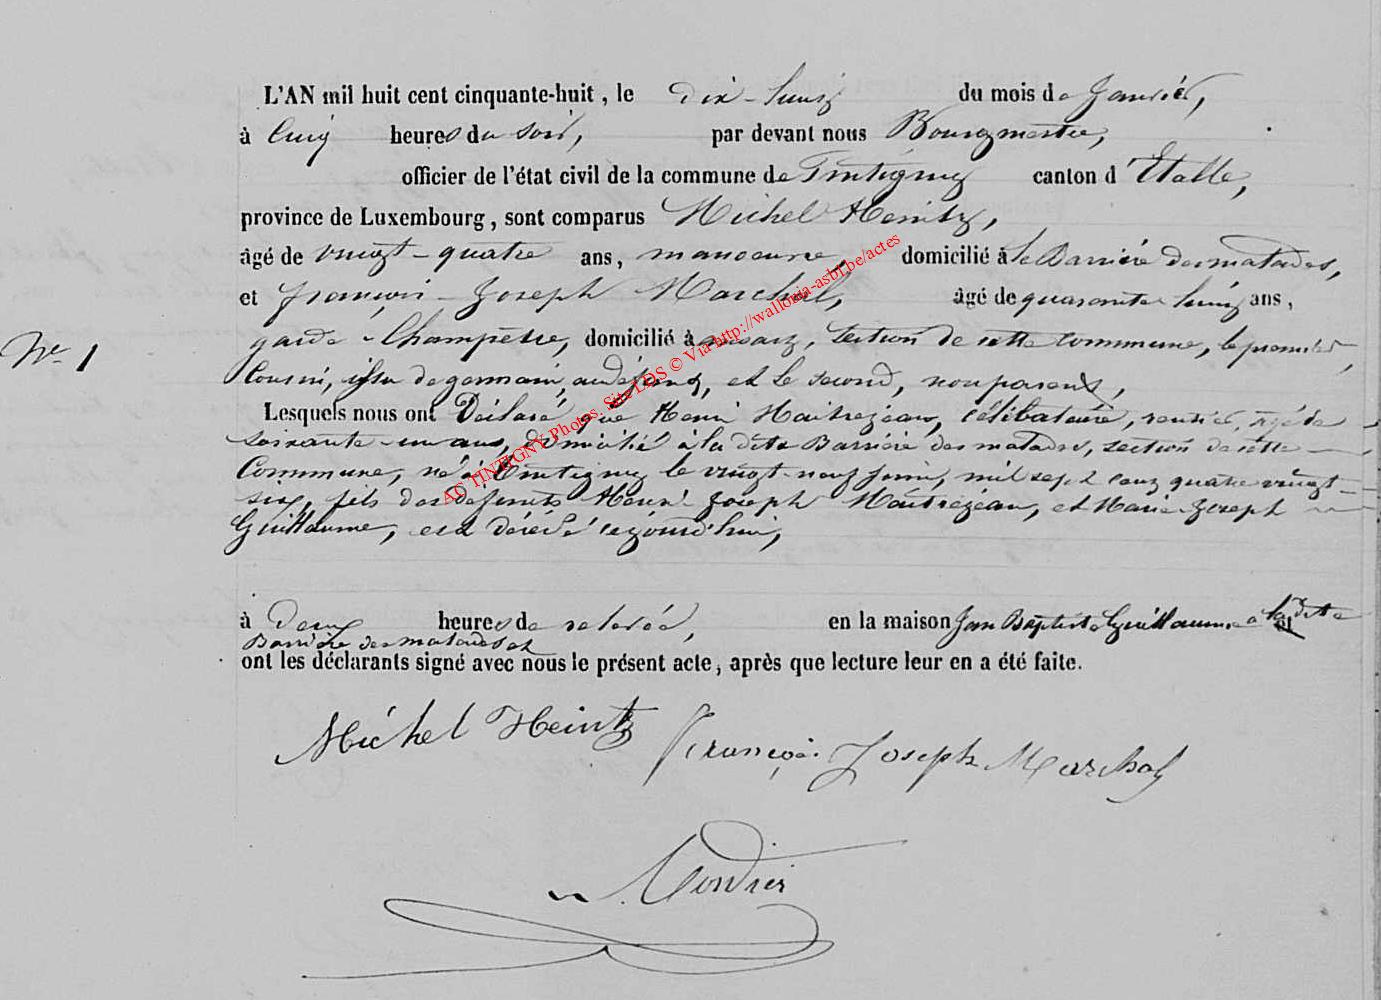 L'AN mil huit cent cinquante-huit, le dix-huit du mois de Janvier,
à Cinq heures du soir, par devant nous Bourgmestre,
officier de l'état civil de la commune de Tintigny canton d'Etalle,
province de Luxembourg, sont comparus Michel Heintz,
âgé de vingt-quatre ans, manoeuvre, domicilié à la Barrière des malades,
et François-Joseph Marchal, âgé de quarante huit ans,
N° 1
garde-Champêtre, domicilié à ansart, section de cette Commune, le premier
Cousin, issu de germain, au défunt, et le second, non parent,
Lesquels nous ont Déclaré, que Henri Maitrejean, célibataire, rentier, âgé de
soixante-un ans, domicilié à la dite Barrière des malades, section de cette
Commune, né à Tintigny le vingt-neuf juin, mil sept cent quatre vingt-
seize, fils des défunts Henri Joseph Maitrejean, et Marie Joseph
Guillaume, est décédé cejourd'hui,
à Deux heures de relevée, en la maison Jean Baptiste Guillaume à la dite
Barrière des malades et
ont les déclarants signé avec nous le présent acte, après que lecture leur en a été faite.
Michel Heintz François Joseph Marchal
AC TINTIGNY Photos. Site LDS © Via http://wallonia-asbl.be/actes